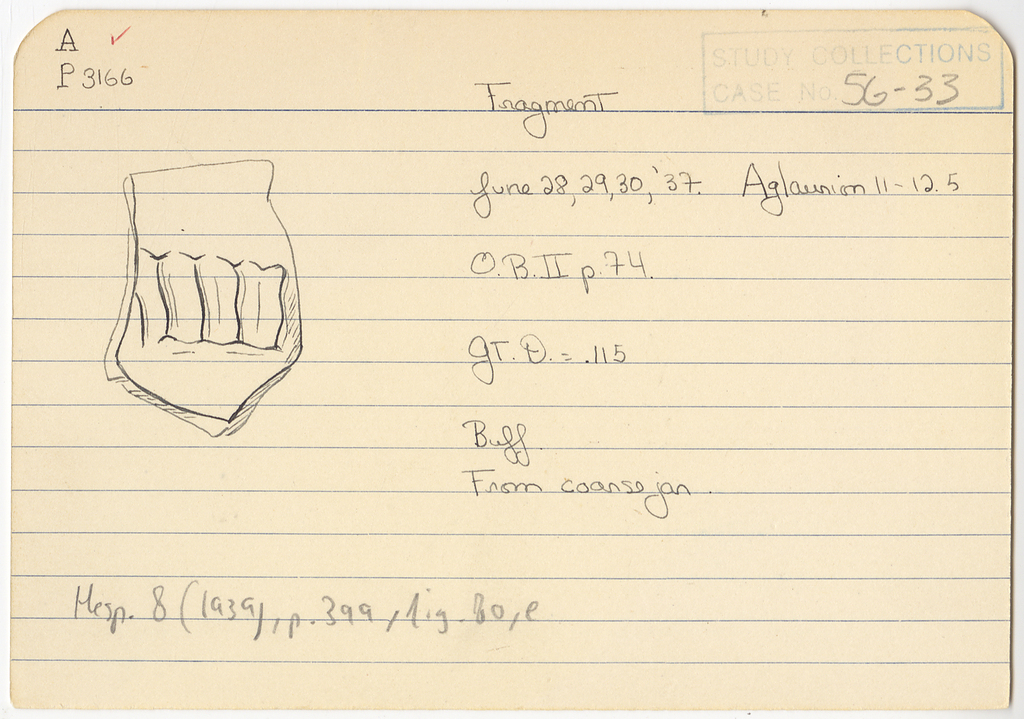 A ✓
P 3166
STUDY COLLECTIONS
CASE No. 56-33
Fragment
June 28, 29, 30, '37. Aglaurion 11-12.5
O.B. II p. 74.
GT. D. = .115
Buff.
From coarse jar.
Hesp. 8 (1939), p. 399, fig. 80, e